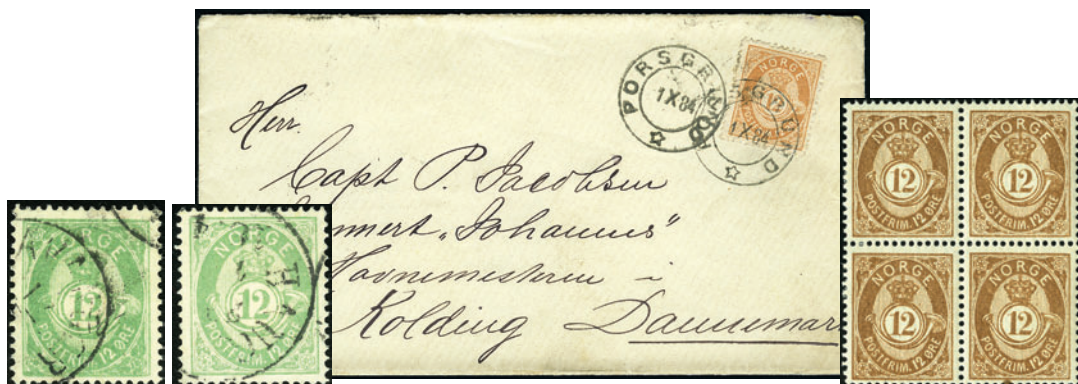 PORSGRUND
1 X 84
PORSGRUND
1 X 84
NORGE
12
Herr.
Capt P. Jacobsen
"Johannus"
Havnemesteren i
Kolding Dannemar
NORGE
12
POSTFRIM. 12 ØRE
NORGE
12
POSTFRIM. 12 ØRE
NORGE 12 POSTFRIM. 12 ØRE
NORGE 12 POSTFRIM. 12 ØRE
NORGE 12 POSTFRIM. 12 ØRE
NORGE 12 POSTFRIM. 12 ØRE